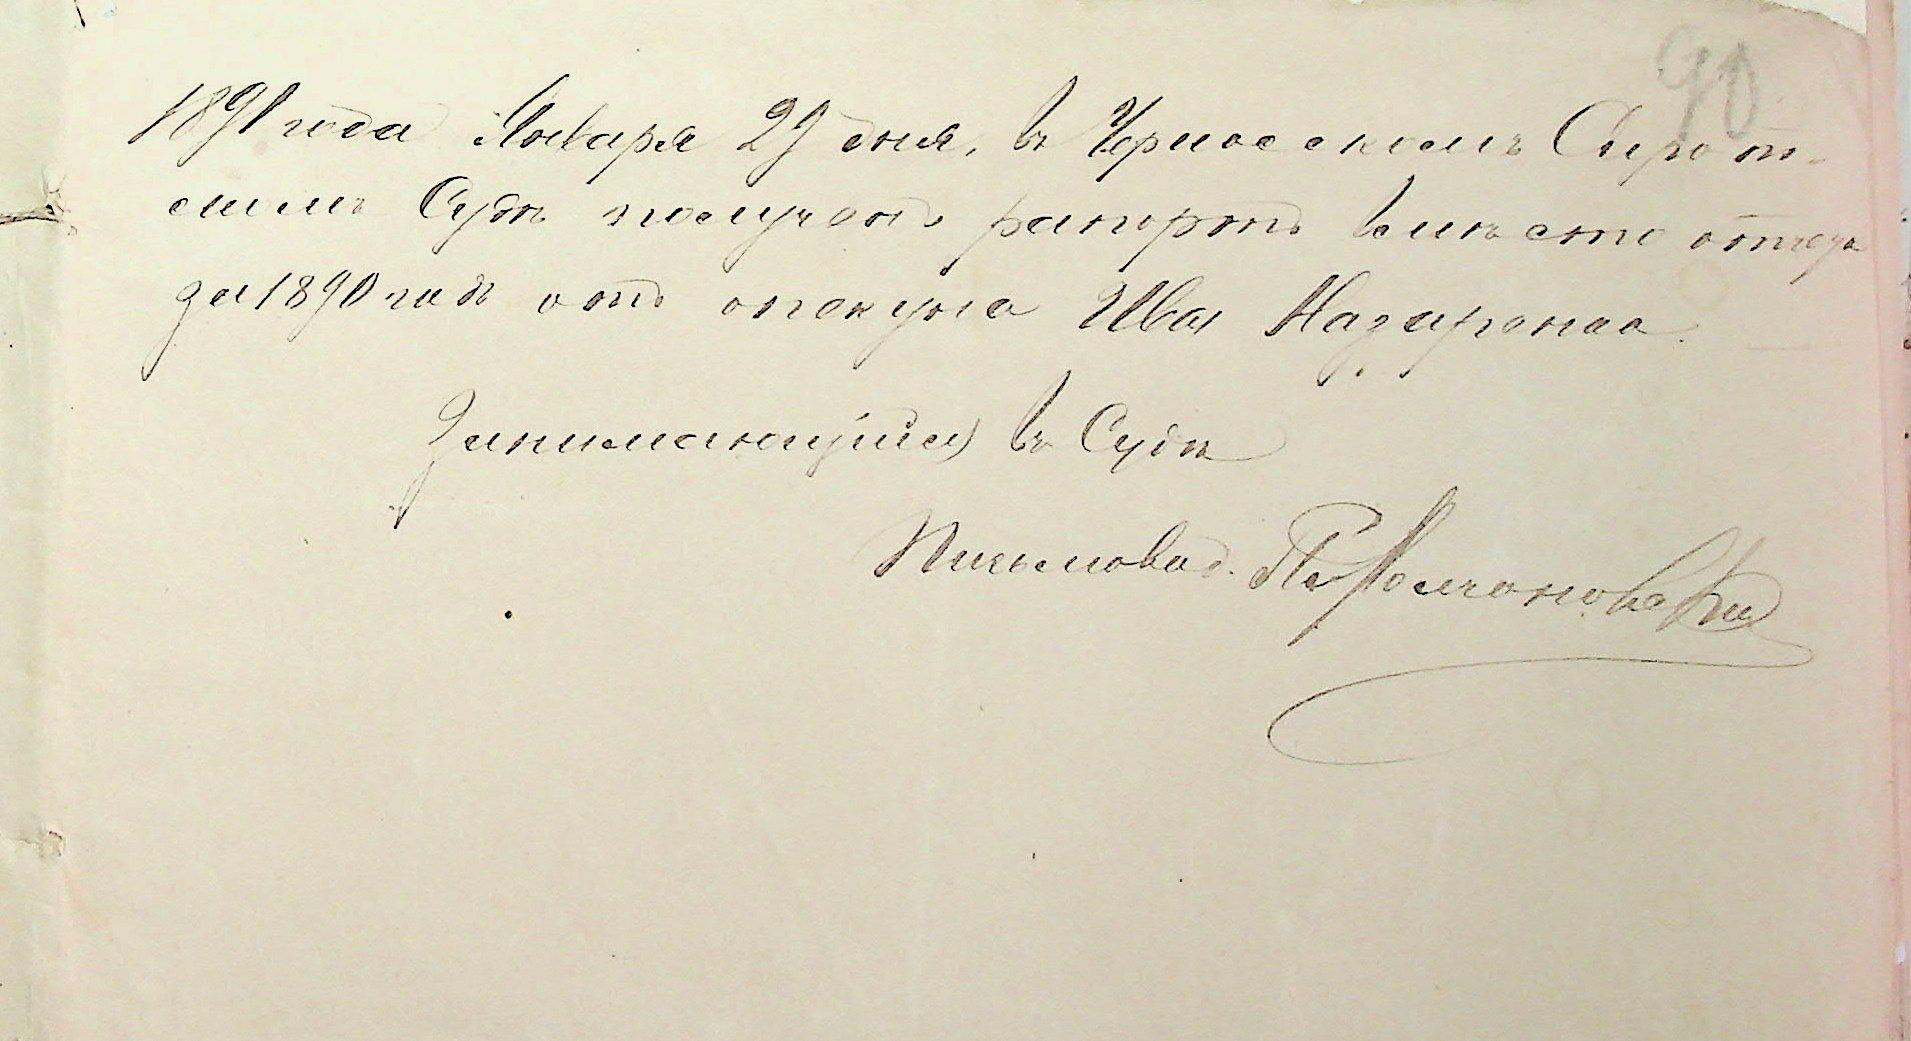 90
1891 года Января 29 дня, въ Черкасскомъ Сирот-
скомъ Судѣ получен рапортъ вмѣсто отчета
за 1890 годъ отъ опекуна Ива Назаренка.
Занимающійся въ Судѣ
Письмовод.